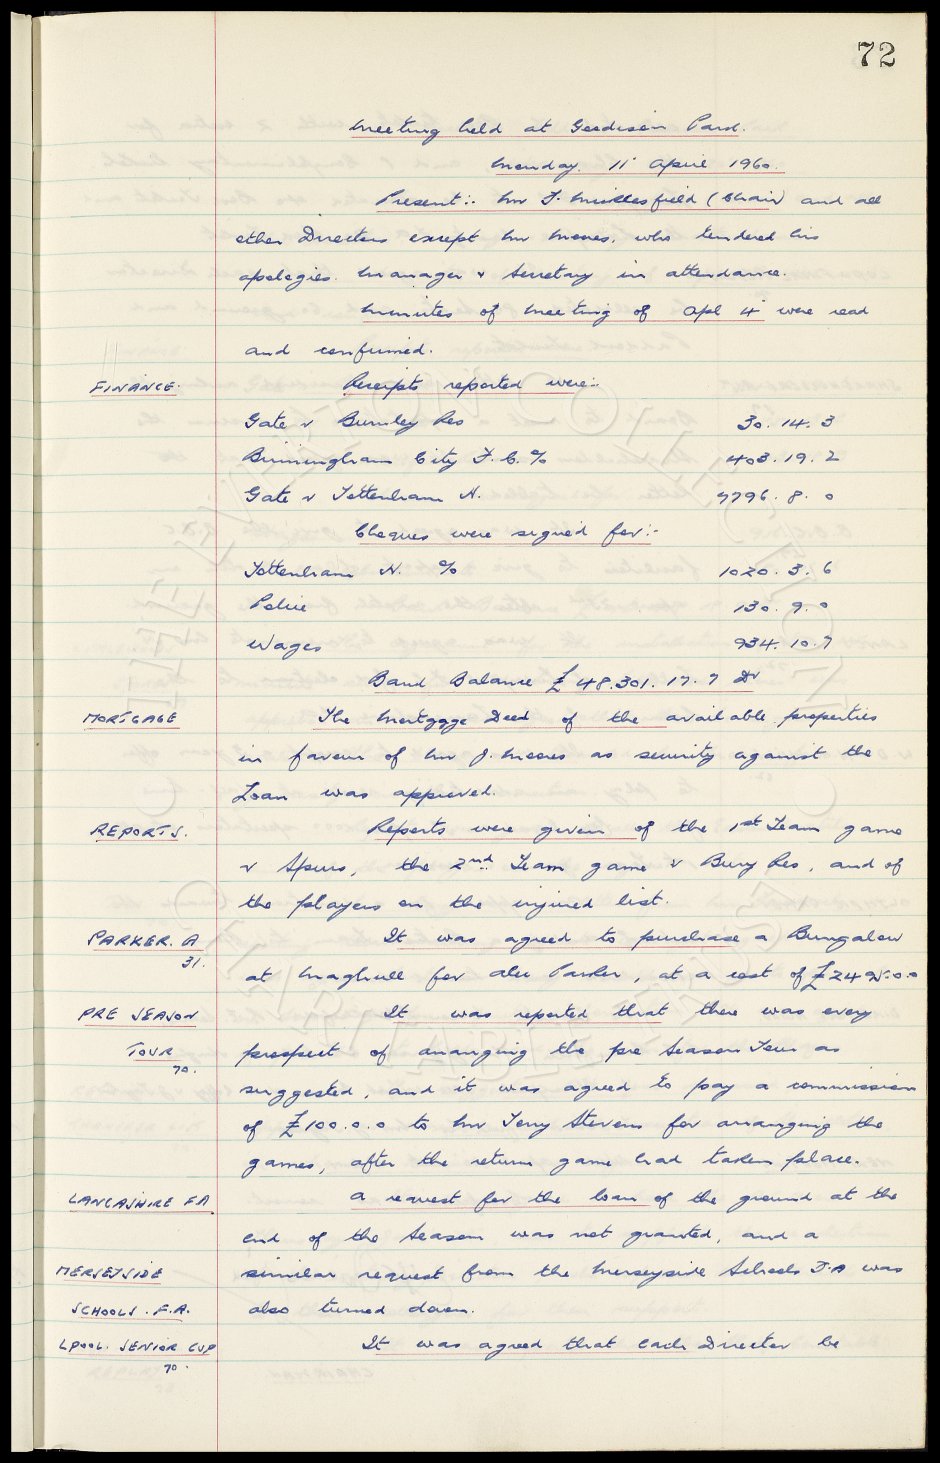 72
Meeting held at Goodison Park.
Monday. 11 April 1960.
Present:- Mr F. Micklesfield (Chair) and all
other Directors except Mr Moores, who tendered his
apologies. Manager & Secretary in attendance.
Minutes of Meeting of Apl 4 were read
and confirmed.
FINANCE. Receipts reported were:-
Gate v Burnley Res 30. 14. 3
Birmingham City F.C. % 403. 19. 2
Gate v Tottenham H. 7796. 8. 0
Cheques were signed for:-
Tottenham H. % 1020. 3. 6
Police 130. 9. 0
Wages 934. 10. 7
Bank Balance £48.301. 17. 7 Dr
MORTGAGE The Mortgage Deed of the available properties
in favour of Mr J. Moores as security against the
Loan was approved.
REPORTS. Reports were given of the 1st Team game
v Spurs, the 2nd Team game v Bury Res, and of
the players on the injured list.
PARKER. A It was agreed to purchase a Bungalow
31. at Maghull for Alec Parker, at a cost of
PRE SEASON It was reported that there was every
TOUR prospect of arranging the pre Season Tour as
70.
suggested, and it was agreed to pay a commission
of £100.0.0 to Mr Terry Stevens for arranging the
games, after the return game had taken place.
LANCASHIRE FA A request for the loan of the ground at the
end of the Season was not granted, and a
MERSEYSIDE similar request from the Merseyside Schools F.A was
SCHOOLS. F.A. also turned down.
LPOOL. SENIOR CUP It was agreed that each Director be
70.